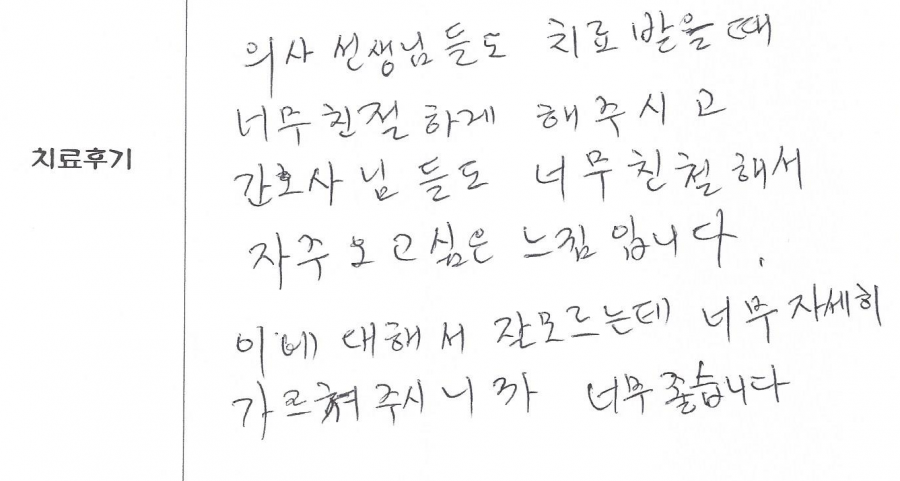 치료후기
의사 선생님들도 치료 받을 때
너무 친절 하게 해주시 고
간호사 님 들도 너무 친절 해서
자주 오 고 싶은 느낌 입니다.
이에 대해 서 잘모르는데 너무 자세히
가르켜 주시 니 까 너무 좋습니다